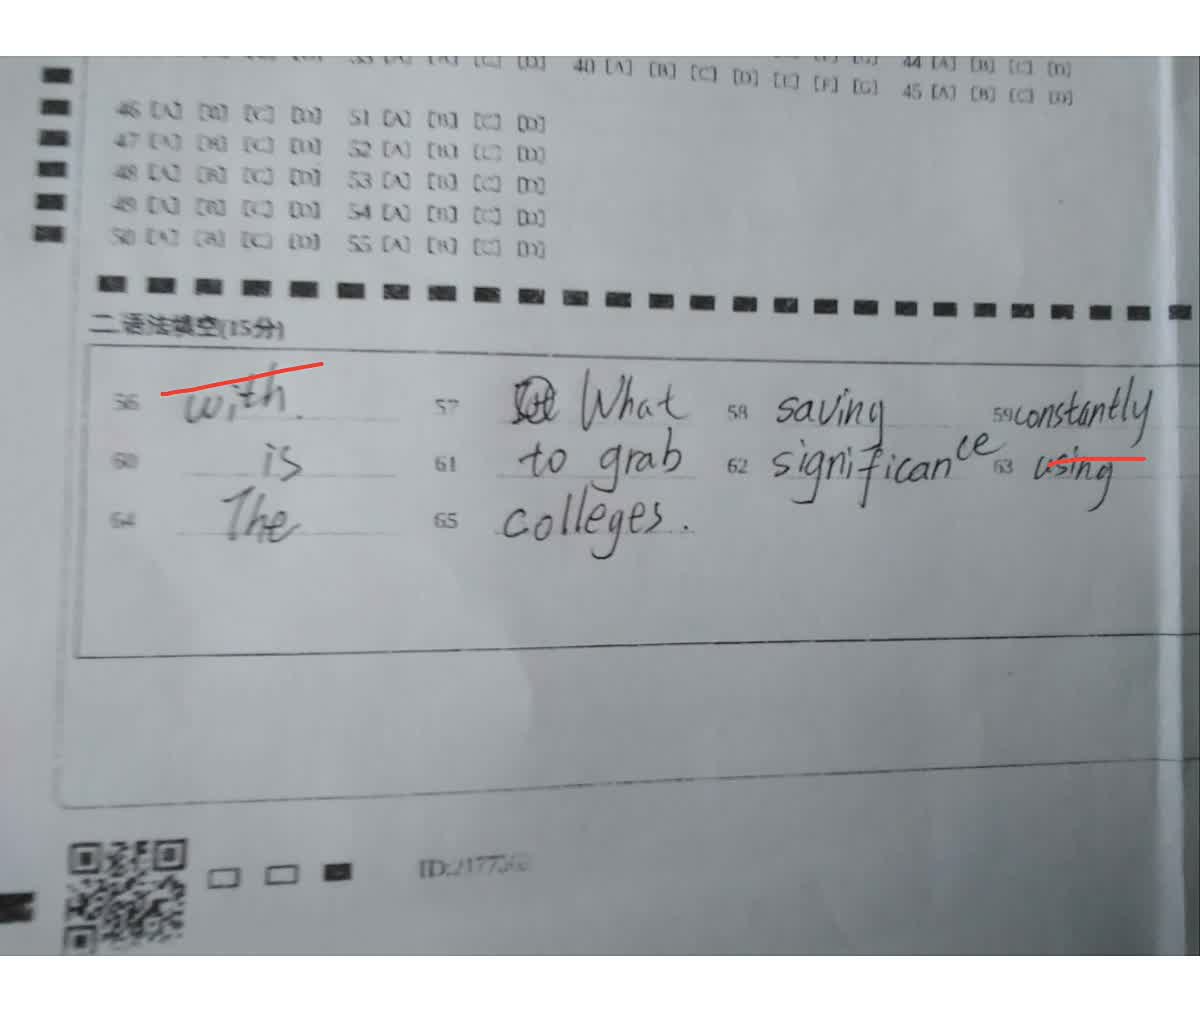 40 [A] [B] [C] [D] [E] [F] [G] 44 [A] [B] [C] [D]
45 [A] [B] [C] [D]
46 [A] [B] [C] [D] 51 [A] [B] [C] [D]
47 [A] [B] [C] [D] 52 [A] [B] [C] [D]
48 [A] [B] [C] [D] 53 [A] [B] [C] [D]
49 [A] [B] [C] [D] 54 [A] [B] [C] [D]
50 [A] [B] [C] [D] 55 [A] [B] [C] [D]
二.语法填空(15分)
56 with. 57 What 58 saving 59 constantly
60 is 61 to grab 62 significance 63 using
64 The 65 colleges.